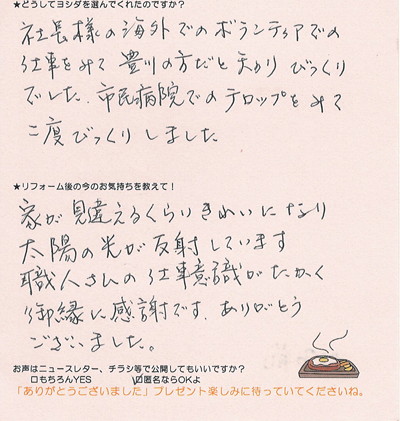 ★どうしてヨシダを選んでくれたのですか?
社長様の海外でのボランティアでの
仕事をみて豊川の方だと知りびっくり
でした.市民病院でのテロップをみて
二度びっくりしました.
★リフォーム後の今のお気持ちを教えて!
家が見違えるくらいきれいになり
太陽の光が反射しています
職人さんの仕事意識がたかく
御縁に感謝です.ありがとう
ございました.
お声はニュースレター、チラシ等で公開してもいいですか?
□もちろんYES ☑匿名ならOKよ
「ありがとうございました」プレゼント楽しみに待っていてくださいね。